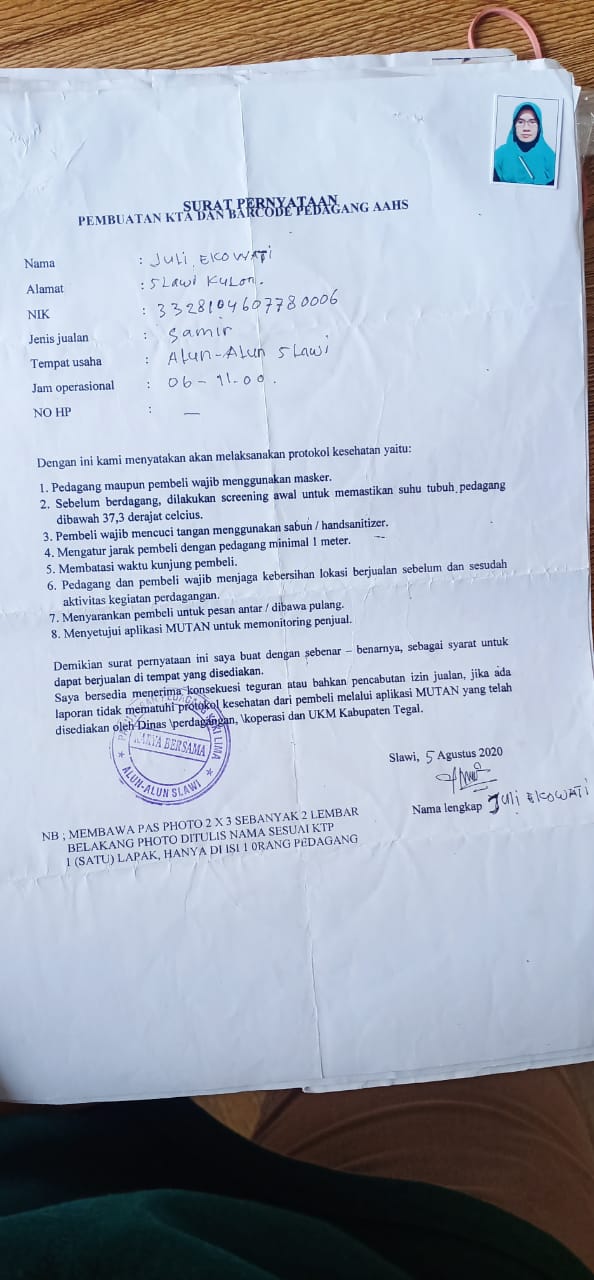 SURAT PERNYATAAN
PEMBUATAN KTA DAN BARCODE PEDAGANG AAHS
Nama : Juli EKOWATi
Alamat : SLawi KuLon.
NIK : 3328104607780006
Jenis jualan : Samir
Tempat usaha : ALun-ALun SLawi
Jam operasional : 06 - 11.00.
NO HP : —
Dengan ini kami menyatakan akan melaksanakan protokol kesehatan yaitu:
1. Pedagang maupun pembeli wajib menggunakan masker.
2. Sebelum berdagang, dilakukan screening awal untuk memastikan suhu tubuh pedagang
dibawah 37,3 derajat celcius.
3. Pembeli wajib mencuci tangan menggunakan sabun / handsanitizer.
4. Mengatur jarak pembeli dengan pedagang minimal 1 meter.
5. Membatasi waktu kunjung pembeli.
6. Pedagang dan pembeli wajib menjaga kebersihan lokasi berjualan sebelum dan sesudah
aktivitas kegiatan perdagangan.
7. Menyarankan pembeli untuk pesan antar / dibawa pulang.
8. Menyetujui aplikasi MUTAN untuk memonitoring penjual.
Demikian surat pernyataan ini saya buat dengan sebenar – benarnya, sebagai syarat untuk
dapat berjualan di tempat yang disediakan.
Saya bersedia menerima konsekuesi teguran atau bahkan pencabutan izin jualan, jika ada
laporan tidak mematuhi protokol kesehatan dari pembeli melalui aplikasi MUTAN yang telah
disediakan oleh Dinas \perdagangan, \koperasi dan UKM Kabupaten Tegal.
KARYA BERSAMA
ALUN-ALUN SLAWI
Slawi, 5 Agustus 2020
Nama lengkap Juli EKOWATi
NB ; MEMBAWA PAS PHOTO 2 X 3 SEBANYAK 2 LEMBAR
BELAKANG PHOTO DITULIS NAMA SESUAI KTP
1 (SATU) LAPAK, HANYA DI ISI 1 0RANG PEDAGANG